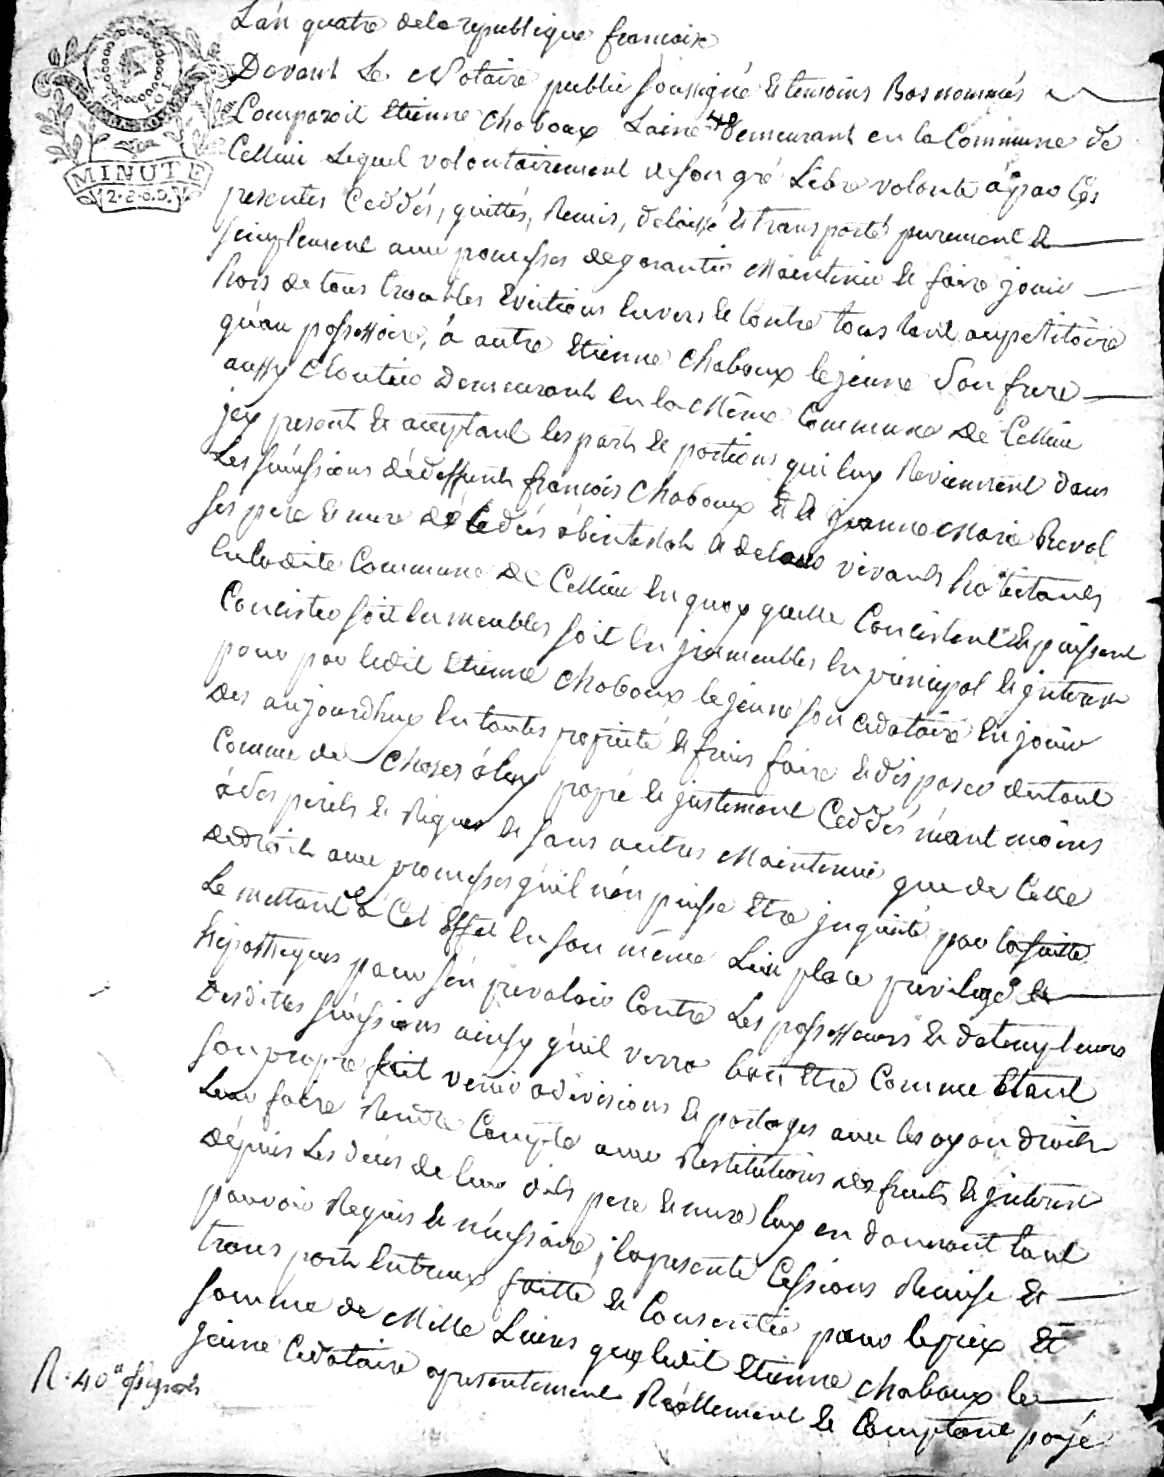 L'an quatre de la republique francaise
Devant Le Notaire public soussigné & temoins Bas nommés
MINUTE
2.S.6.D.
Comparoit Etienne Chaboux L'ainé demeurant en la Commune de
Cellieu Lequel volontairement de son gré Libre volonté a par Ces
presentes Ceddés, quittés, Remis, delaissé & transporté purement &
simplement avec promesses de garantir Maintenir & faire jouir
hors de tous troubles Evictions Envers & Contre tous tant au petitoire
qu'au possessoire, à autre Etienne Chaboux le jeune Son frere
aussy Cloutier Demeurant En la Même Commune de Cellieu
jcy present & acceptant les parts & portions qui luy Reviennent dans
Les sucessions de deffunts françois Chaboux & de jeanne Marie Revol
ses pere & mere décédés abintestat & de leurs vivants habitants
En ladite Commune de Cellieu En quoy qu'elle Concistent & puissent
Concister soit En meubles soit En jmmeubles En principal & jnterest
pour par ledit Etienne Chaboux le jeune son cedataire En jouir
des aujourdhuy En toutes proprieté & fruis faire & disposer du tout
Comme de Choses à luy propre & justement Ceddés néant moins
à des perils & Riques & sans autres Maintenue que de Celle
de droit avec promesses qu'il n'en puisse Etre jnquieté par la suitte
Le mettant à Cet Effet En son même Lieu place privilege &
hÿpotheques pour s'en prevaloir Contre Les possesseurs & detempteurs
desdittes sucessions ainsy qu'il verra bon Etre Comme Etant
son propre fait venir a divisions & partages avec les ayan droits
Leur faire Rendre Compte avec Restitutions des fruits & jnterest
dépuis Les déces de leur dits pere & mere luy en donnant tout
pouvoir Requis & nécessaire ; la presente Cessions Remise &
transport Entreux faitte & Consentie pour le prix Et
somme de Mille Livres que ledit Etienne Chaboux le
jeune Cedataire a presentement Réellement & Comptant payé
R. 40 assignats